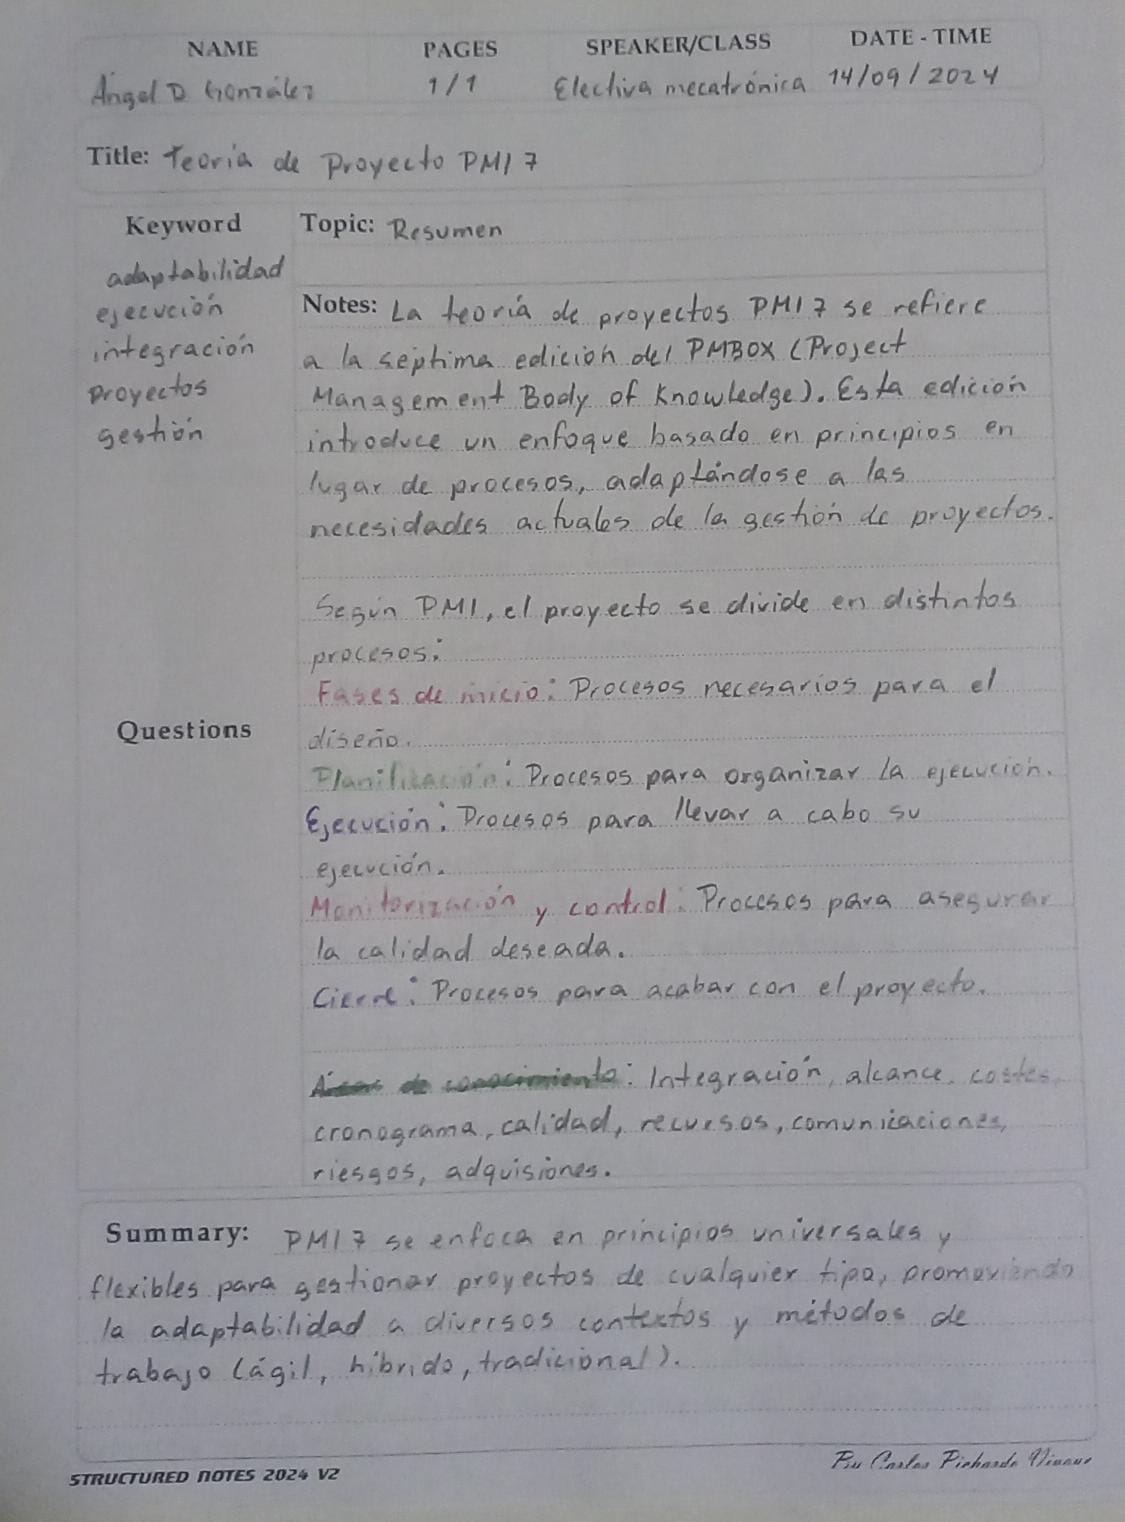 NAME PAGES SPEAKER/CLASS DATE - TIME
Ángel D González 1/1 Electiva mecatrónica 14/09/2024
Title: Teoría de Proyecto PMI 7
Keyword
adaptabilidad
ejecución
integración
Proyectos
gestión
Topic: Resumen
Notes: La teoría de proyectos PMI 7 se refiere
a la séptima edición del PMBOX (Project
Management Body of Knowledge). Esta edición
introduce un enfoque basado en principios en
lugar de procesos, adaptándose a las
necesidades actuales de la gestión de proyectos.
Según PMI, el proyecto se divide en distintos
procesos:
Fases de inicio: Procesos necesarios para el
diseño.
Questions
Planificación: Procesos para organizar la ejecución.
Ejecución: Procesos para llevar a cabo su
ejecución.
Monitorización y control: Procesos para asegurar
la calidad deseada.
Cierre: Procesos para acabar con el proyecto.
Áreas de conocimiento: Integración, alcance, costes,
cronograma, calidad, recursos, comunicaciones,
riesgos, adquisiones.
Summary: PMI 7 se enfoca en principios universales y
flexibles para gestionar proyectos de cualquier tipo, promoviendo
la adaptabilidad a diversos contextos y métodos de
trabajo (ágil, híbrido, tradicional).
STRUCTURED NOTES 2024 V2
Carlos Pichardo